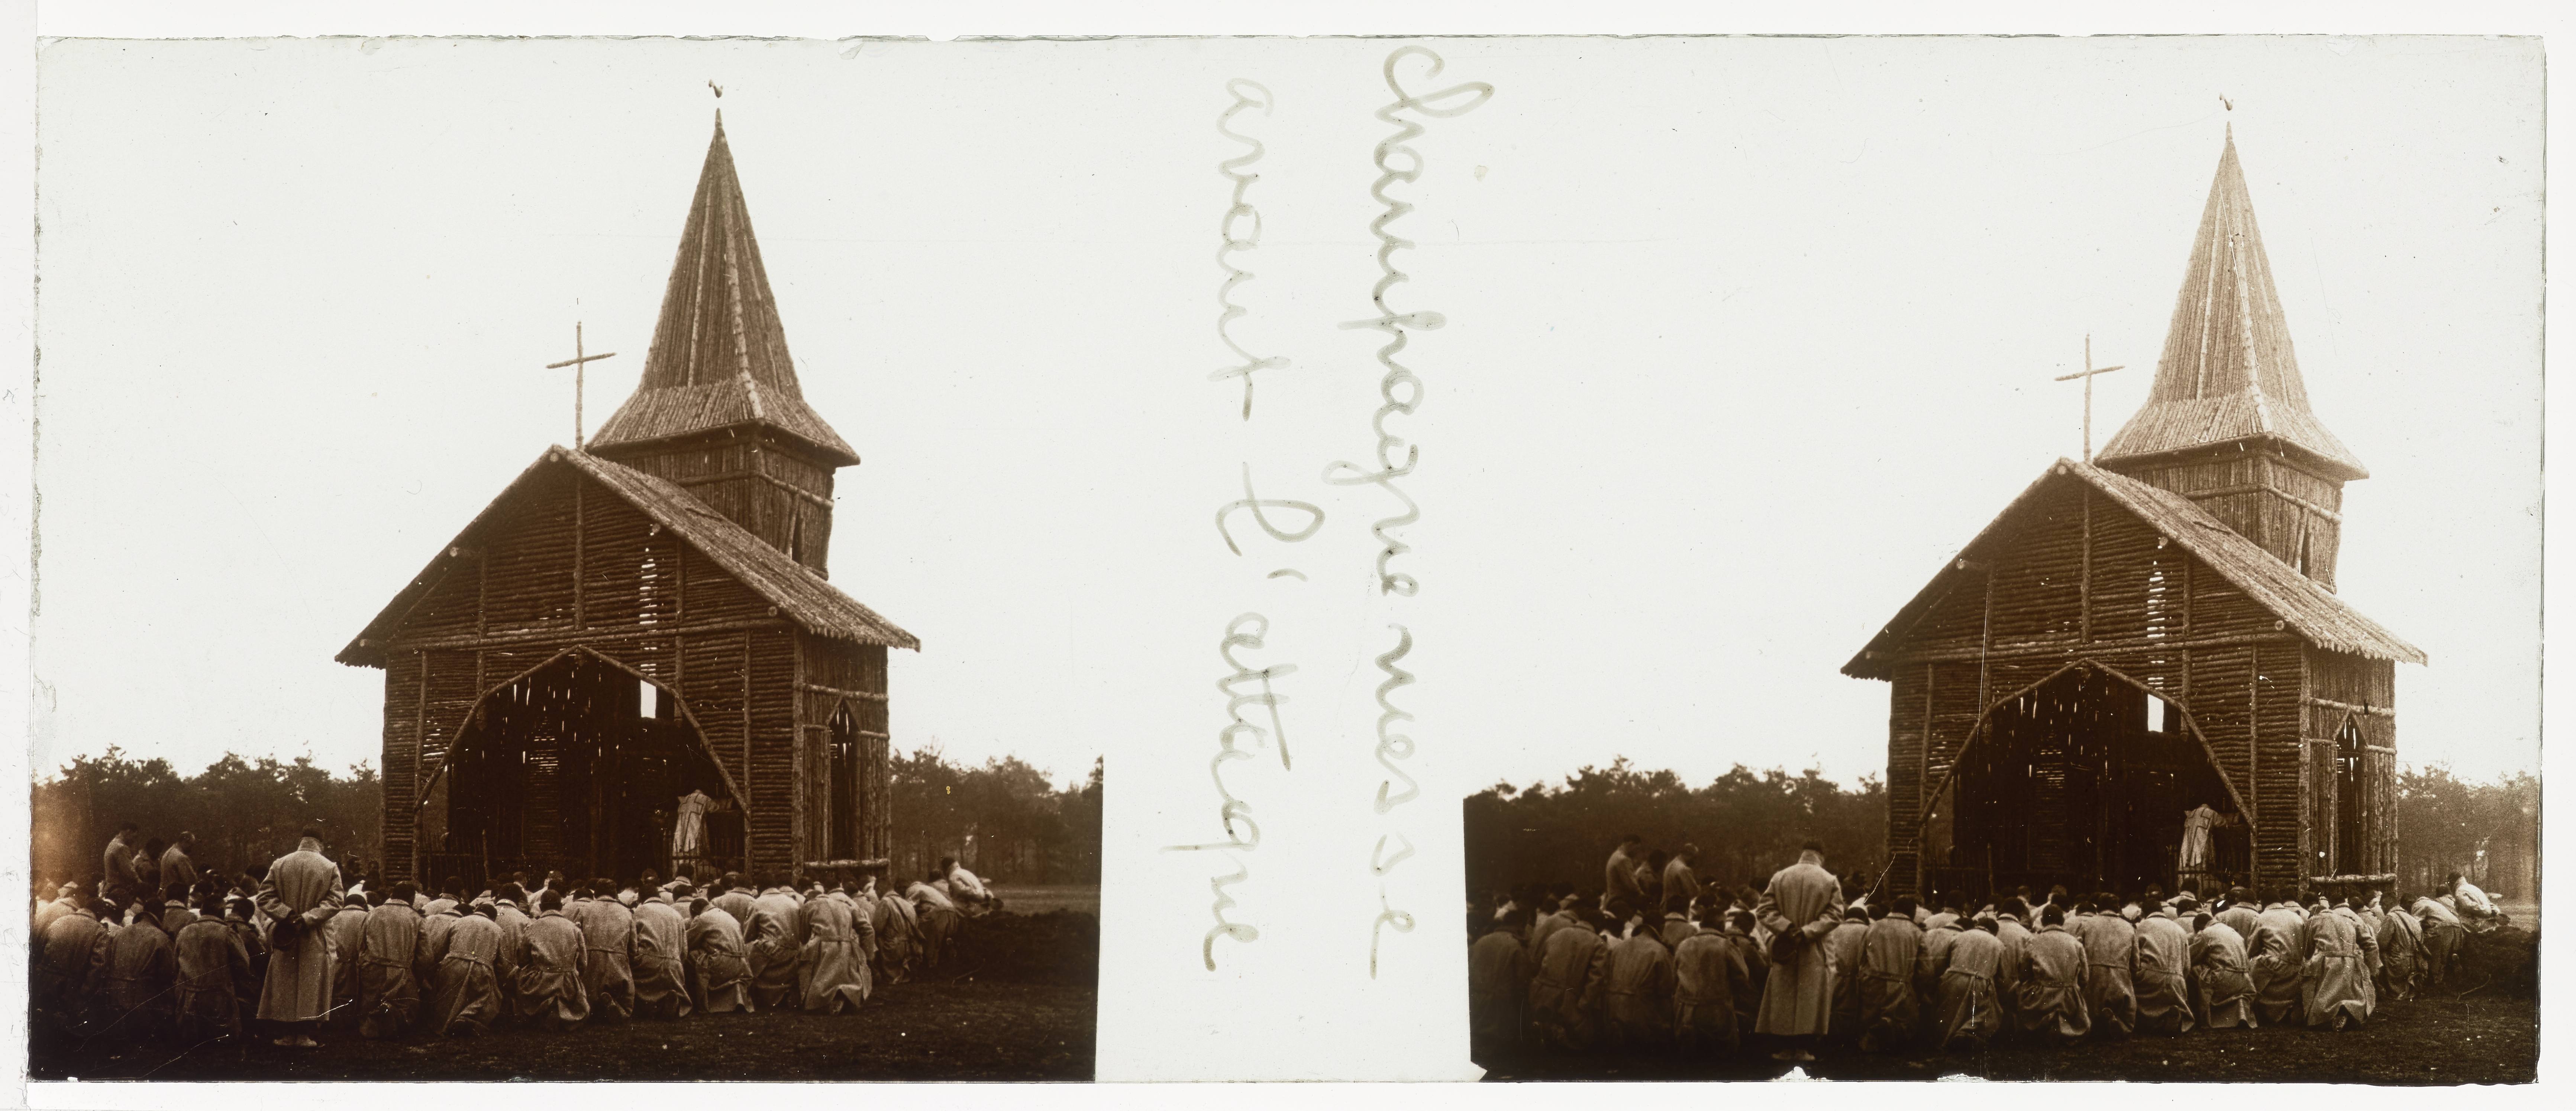 Champagne messe
avant l'attaque